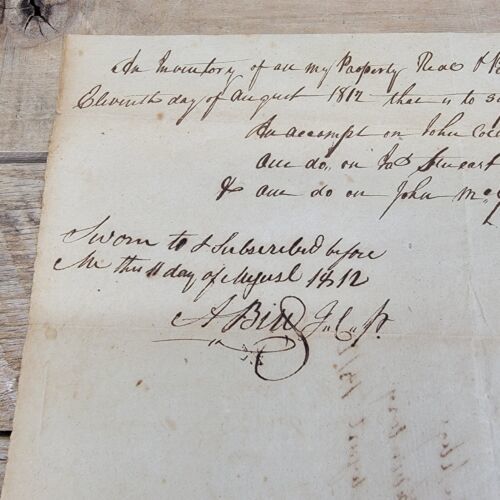 An Inventory of all my Property Real &
Eleventh day of August 1812 that is to
An accompt on John
one do. on Jas Stuart
& one do on John Mc
Sworn to & Subscribed before
Me this 11 day of August 1812
A Bill J. C. P.